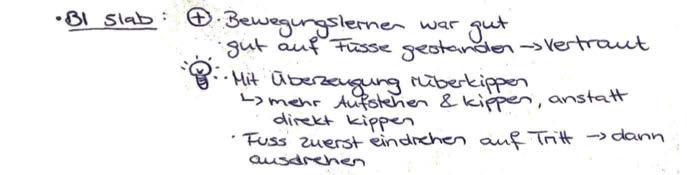 • B1 Slab : ⊕ • Bewegungslernen war gut
• gut auf Füsse gestanden → vertraut
• Mit Überzeugung rüberkippen
↳ mehr Aufstehen & kippen, anstatt
direkt kippen
• Fuss zuerst eindrehen auf Tritt → dann
ausdrehen